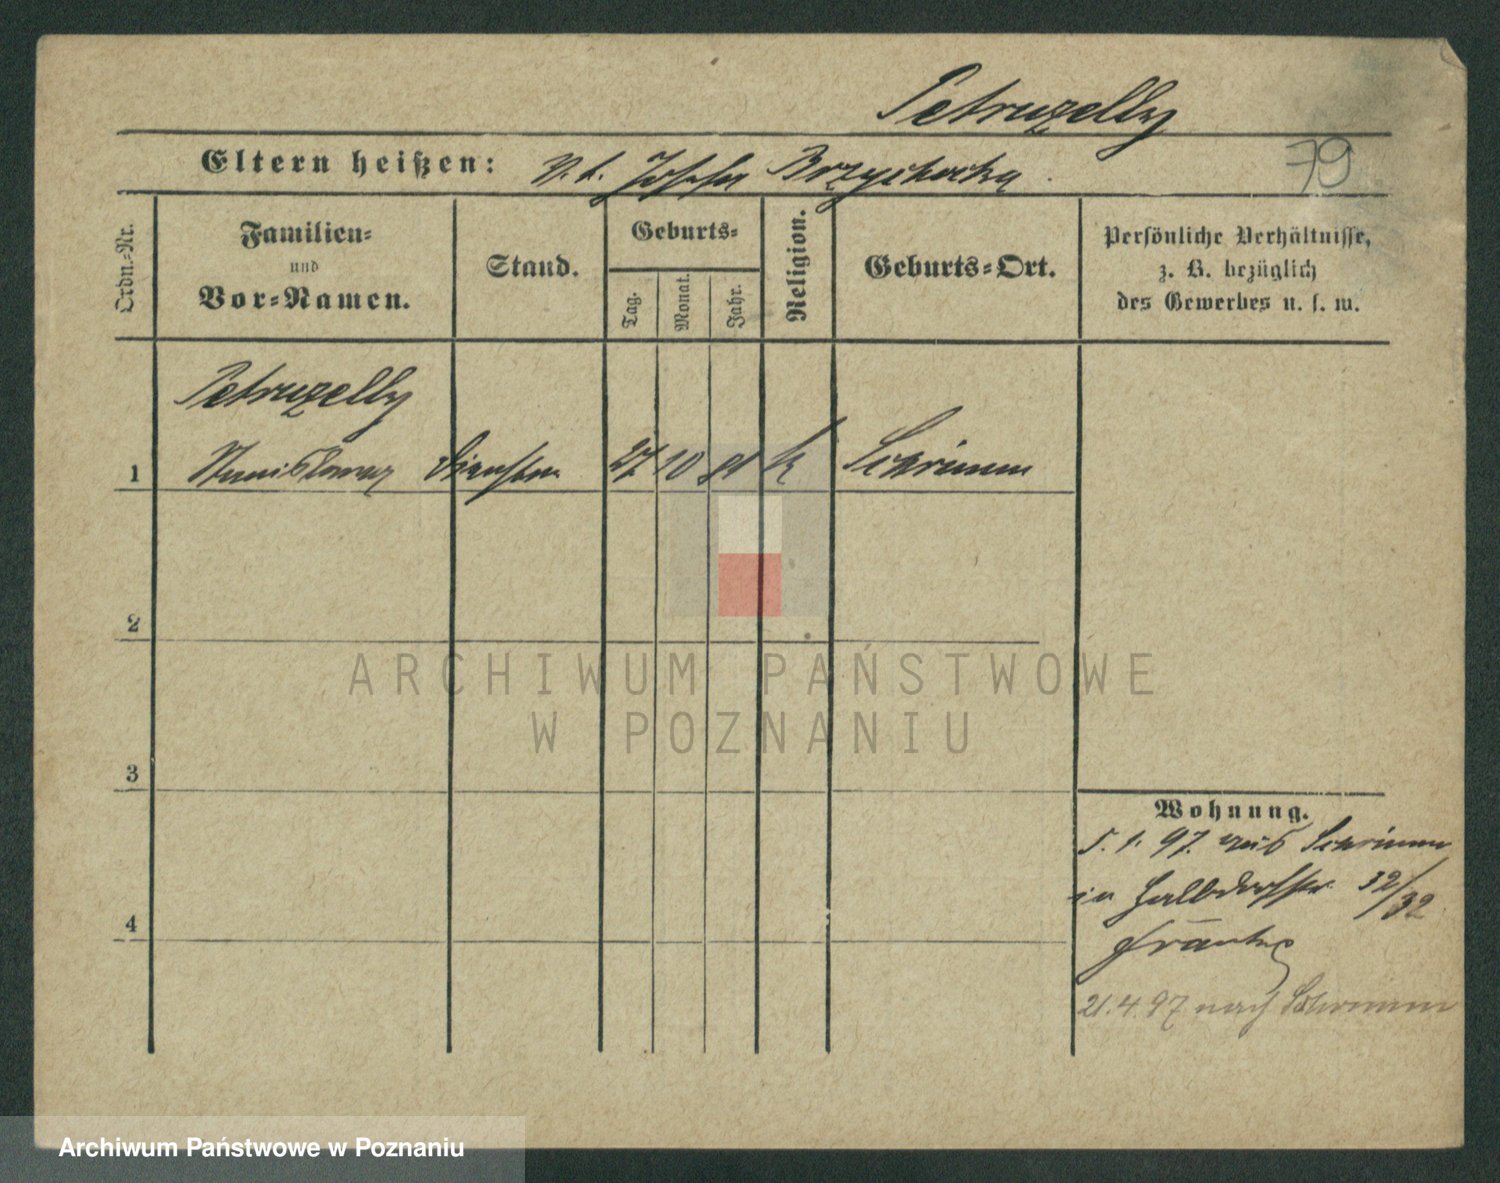 Petruzelly
79
Eltern heißen: V. t. Josefa Brzychcicka
Ordn.-Nr.
Familien-
und
Vor-Namen.
Stand.
Geburts-
Tag.
Monat.
Jahr.
Religion.
Geburts-Ort.
Persönliche Verhältnisse,
z. B. bezüglich
des Gewerbes u. s. w.
Petruzelly
1 Stanislaus 27 10 81 k Schrimm
2
ARCHIWUM PAŃSTWOWE
W POZNANIU
3
Wohnung.
5. 1. 97. aus Schrimm
in Halbdorfstr. 32/32
4
21. 4. 97 nach Schrimm
Archiwum Państwowe w Poznaniu